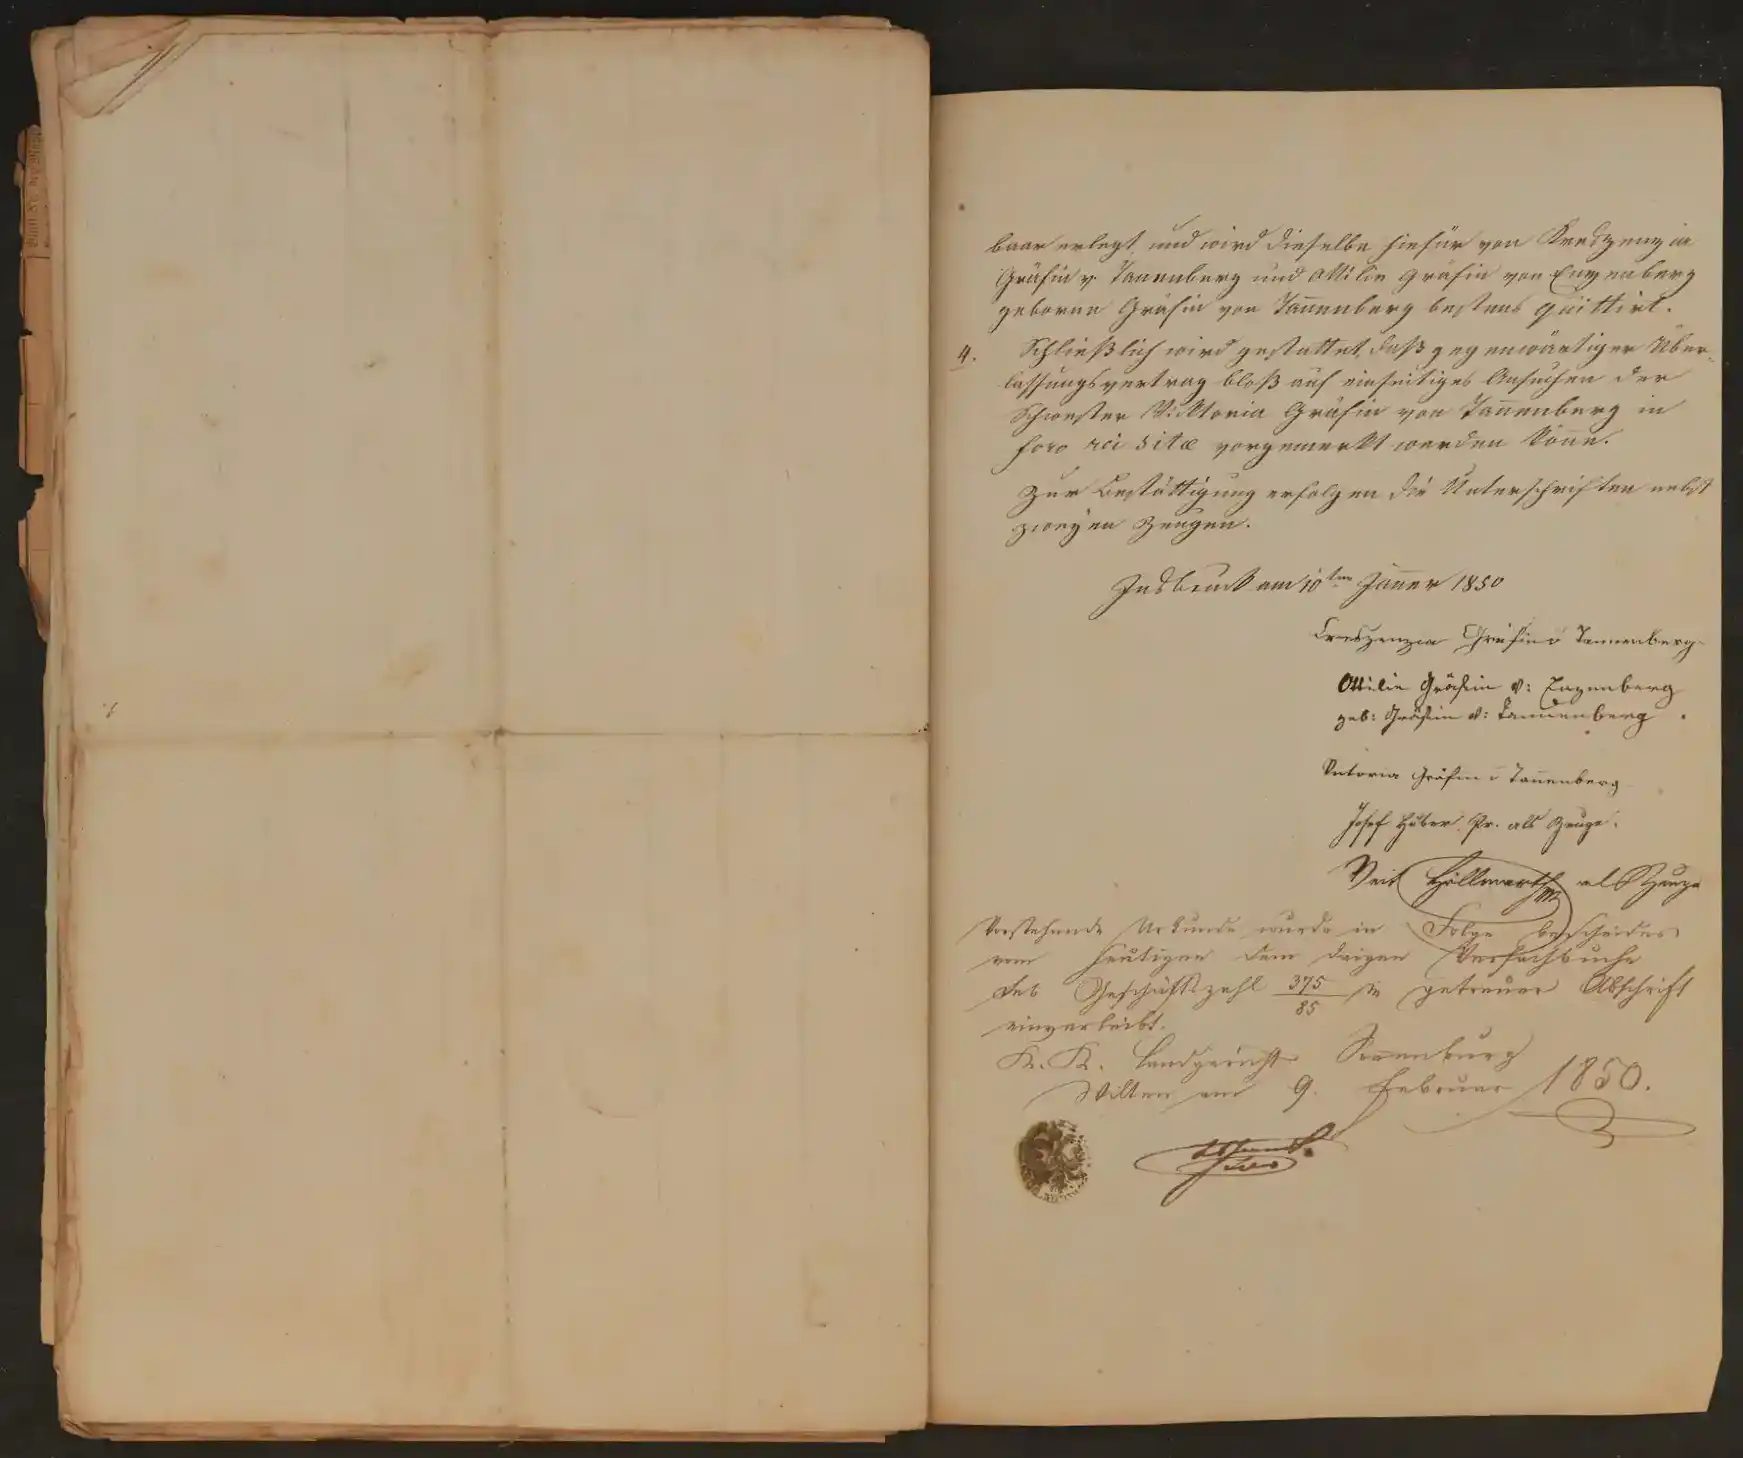 baar erlegt und wird dieselbe hiefür von Kreszenzia
Gräfin v. Tannenberg und Ottilie Gräfin von Enzenberg
geborne Gräfin von Tannenberg bestens quittirt.
4. Schließlich wird gestattet, daß gegenwärtiger Über-
lassungsvertrag bloß auf einseitiges Ansuchen der
Schwester Viktoria Gräfin von Tannenberg in
foro rei sitæ vorgemerkt werden könne.
Zur Bestättigung erfolgen die Unterschriften nebst
zweyen Zeugen.
Insbruck am 10ten Jänner 1850
Creszenzia Gräfin v Tannenberg
Ottilie Gräfin v: Enzenberg
geb: Gräfin v: Tannenberg.
Victoria Gräfin v Tannenberg
Josef Huber Pr. als Zeuge.
Veit Höllwarth als Zeuge
Vorstehende Urkunde wurde in Folge Bescheides
vom Heutigen dem Verfachbuche
sub Geschäftszahl 375/85 in getreuer Abschrift
einverleibt.
K. K. Landgericht Sonnenburg
Wilten am 9. Februar 1850.